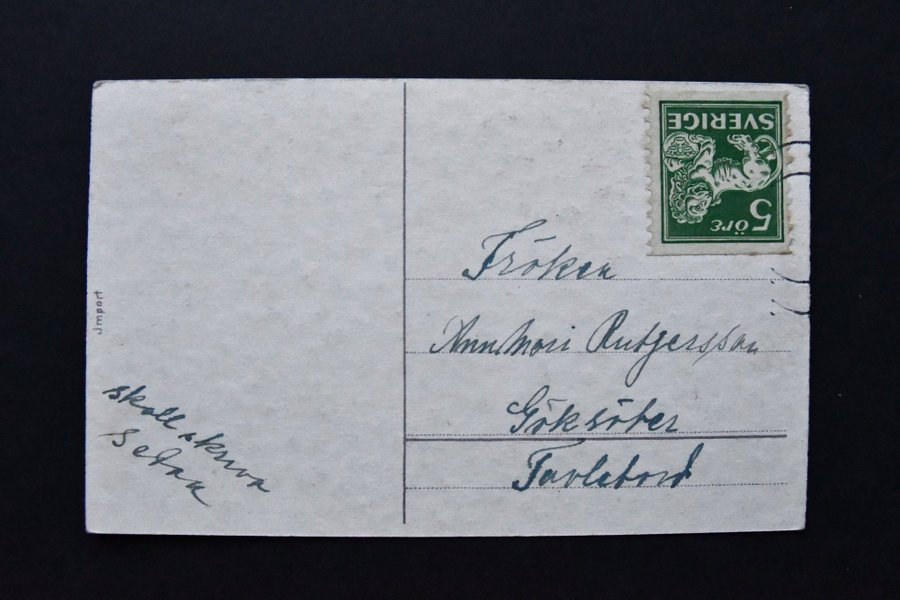 SVERIGE
5 ÖRE
Fröken
AnnMari Rutgersson
Göksäter
Import
skall skriva
Sedan